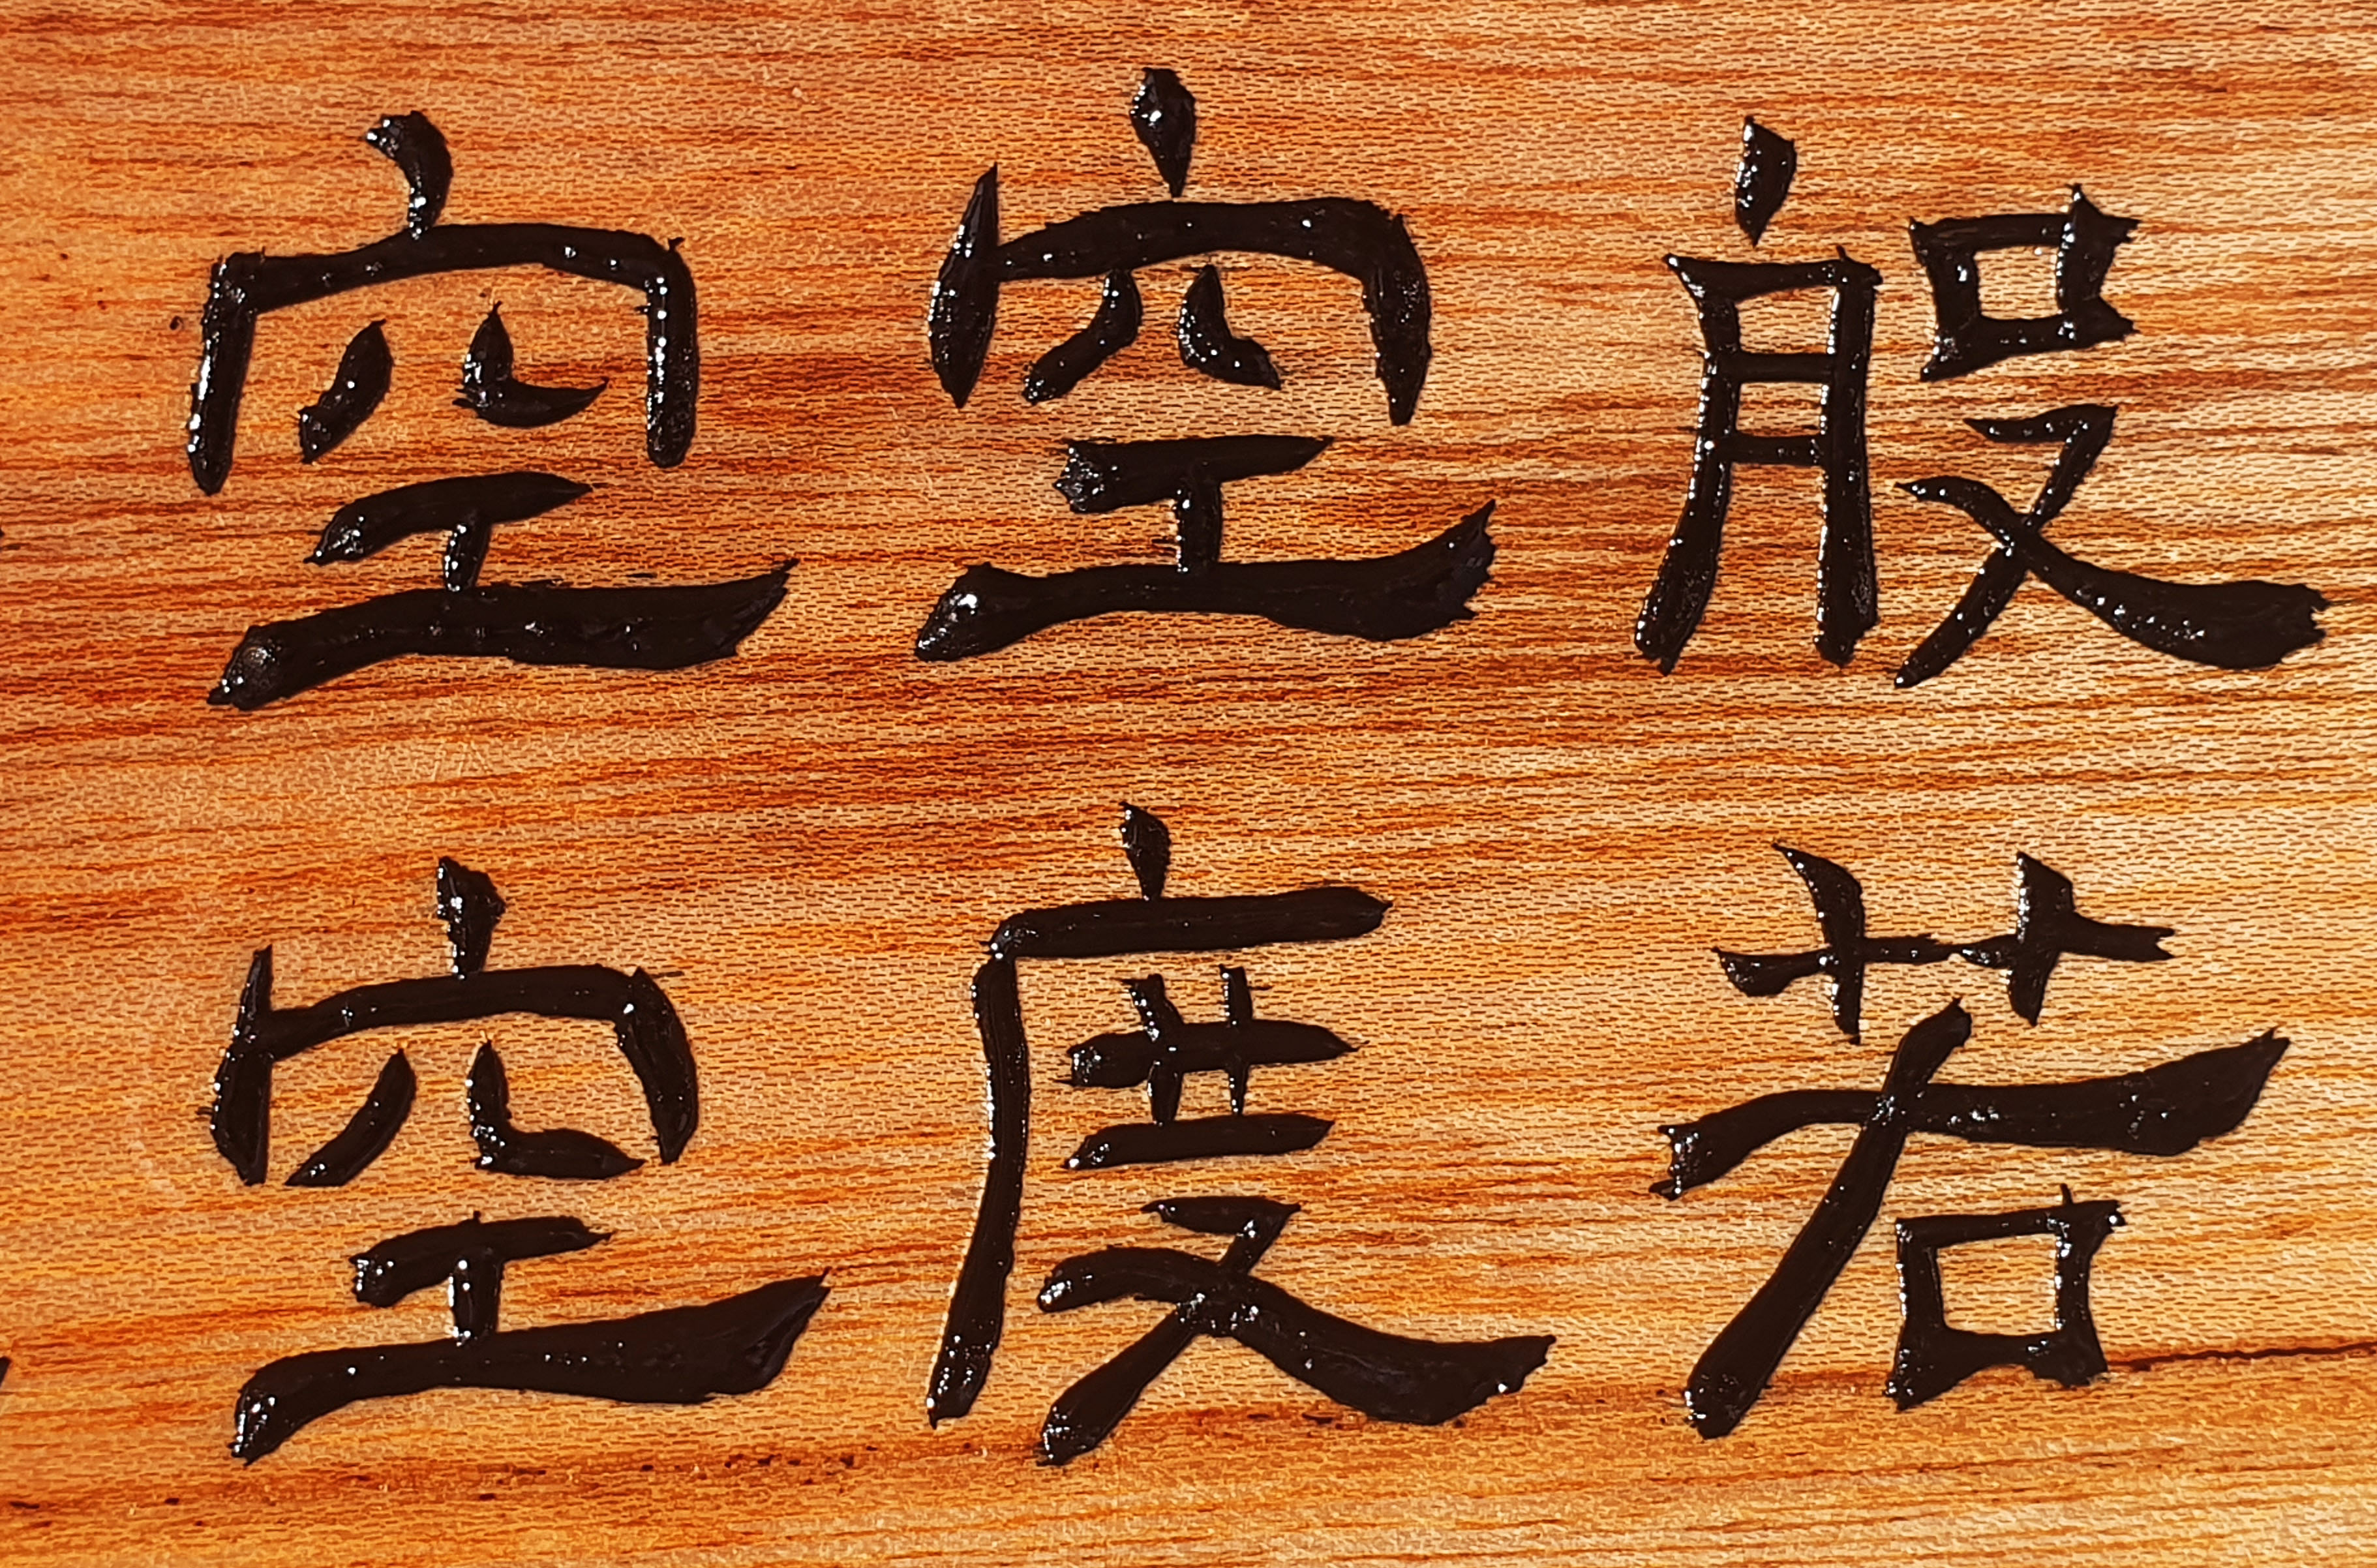 般若
空度
空空